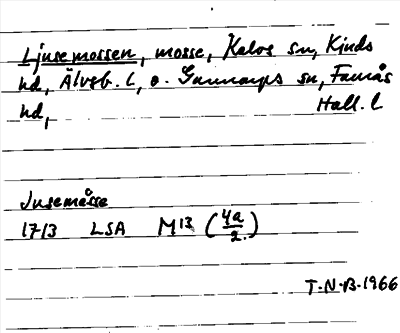 Ljusemossen, mosse, Kalvs sn, Kinds
hd, Älvsb. l, o. Gunnarps sn, Faurås
hd, Hall. l
Jusemåsse
1713 LSA M13 (4a/2.)
T-N-B-1966